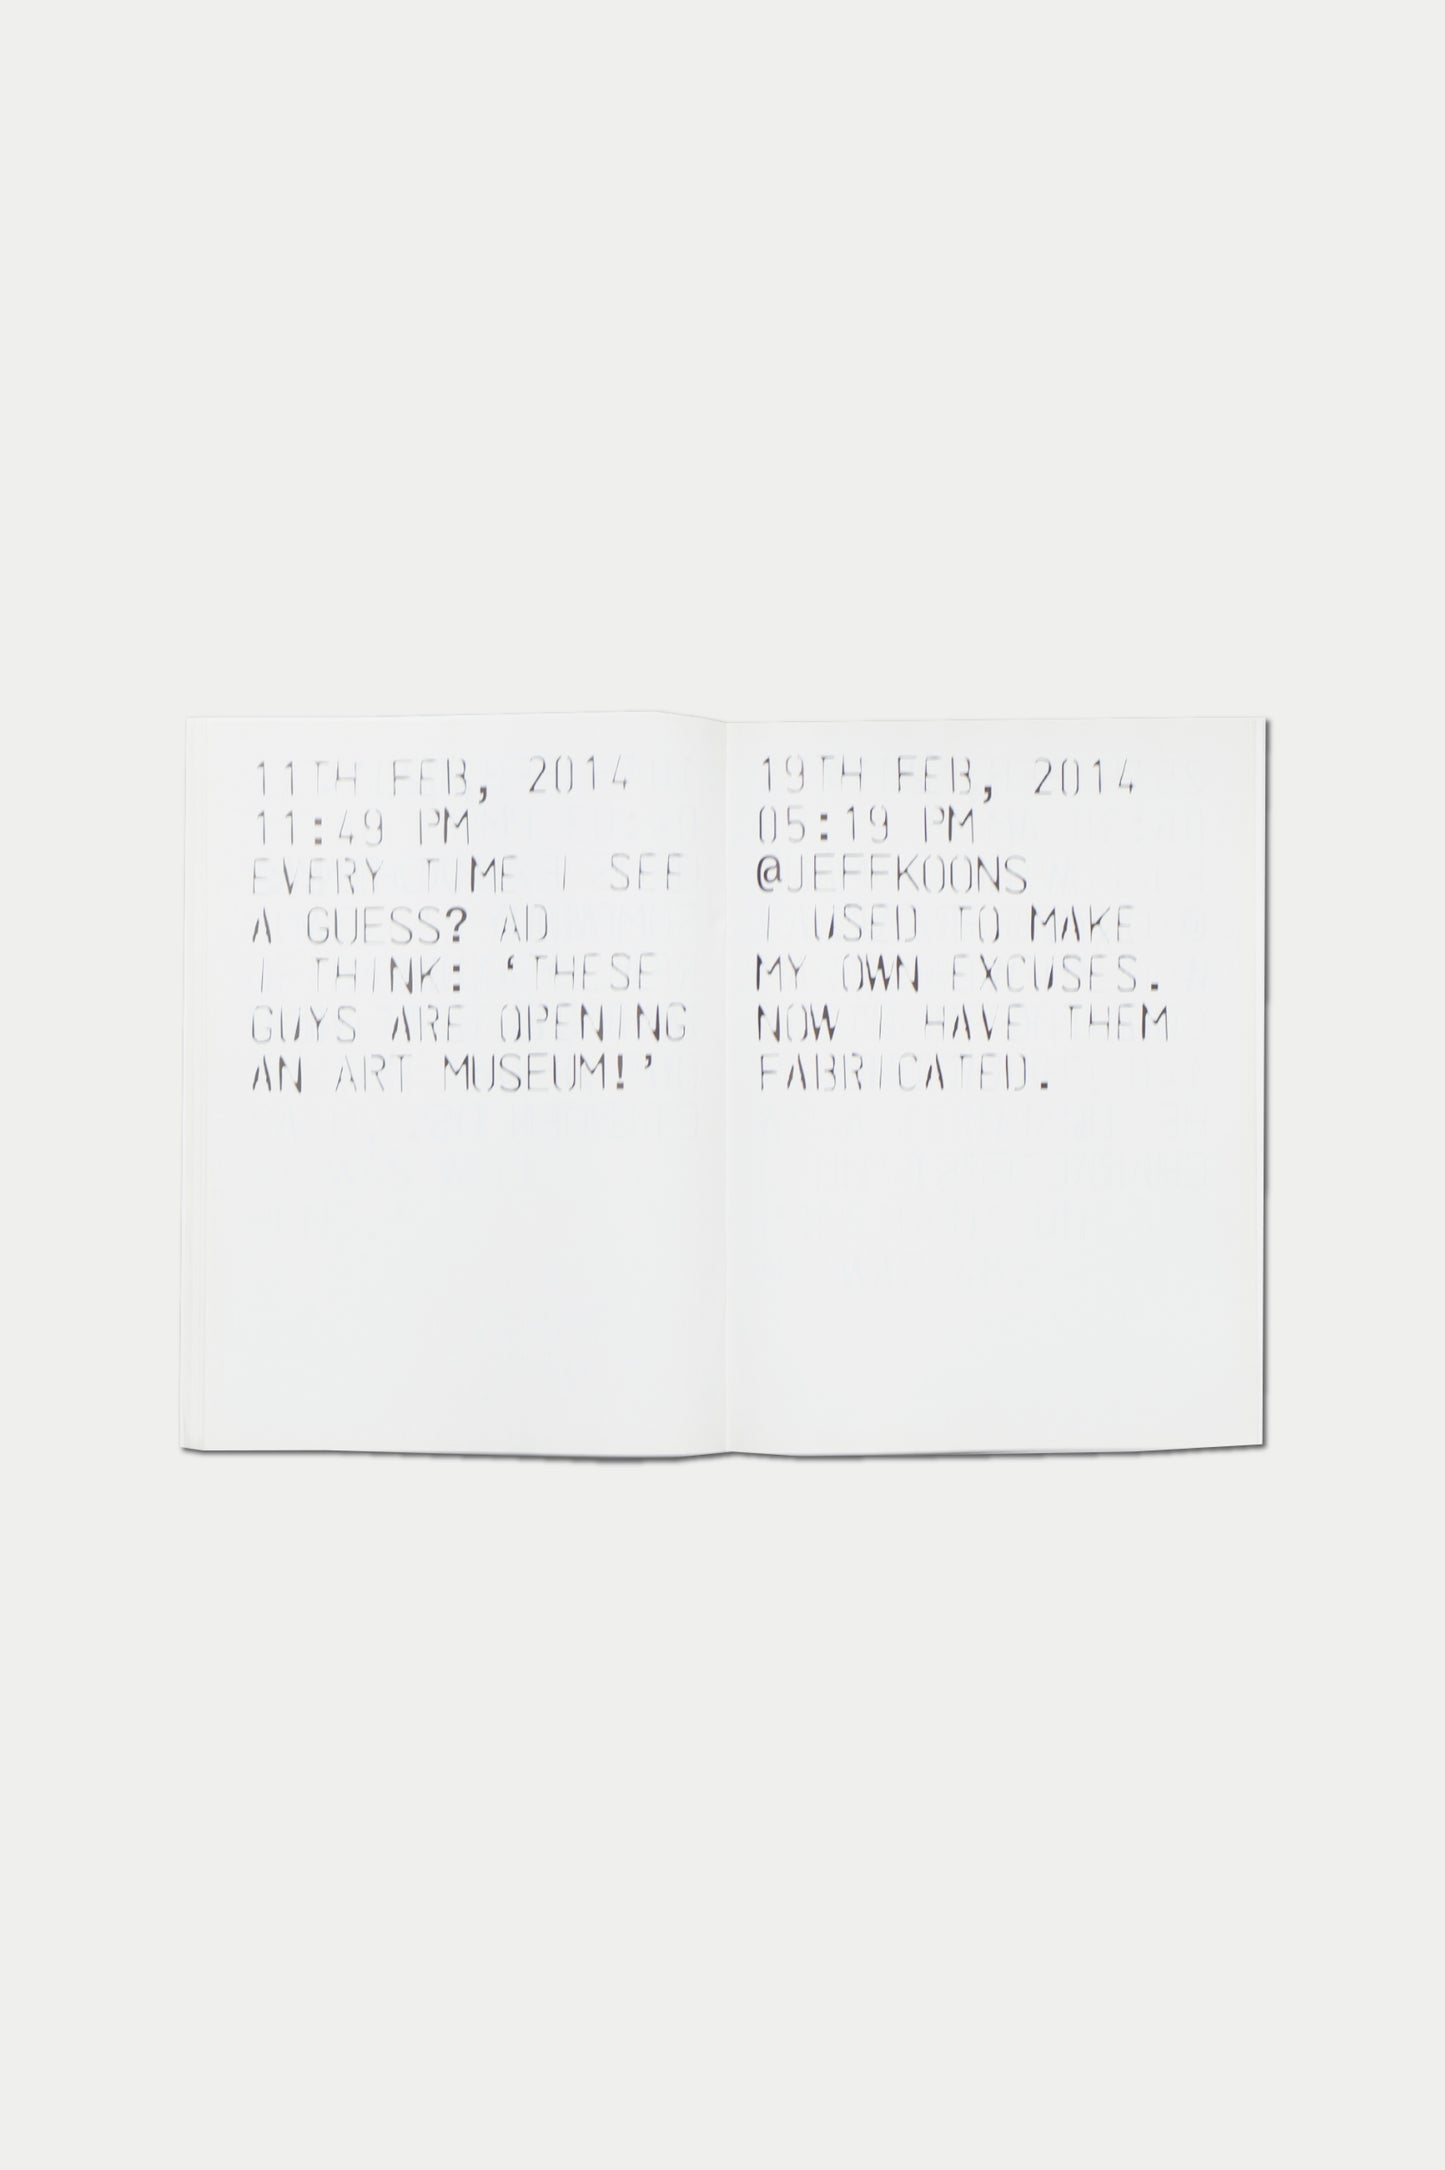 11TH FEB, 2014
11:49 PM
EVERY TIME I SEE
A GUESS? AD
I THINK: ‘THESE
GUYS ARE OPENING
AN ART MUSEUM!’
19TH FEB, 2014
05:19 PM
@JEFFKOONS
I USED TO MAKE
MY OWN EXCUSES.
NOW I HAVE THEM
FABRICATED.